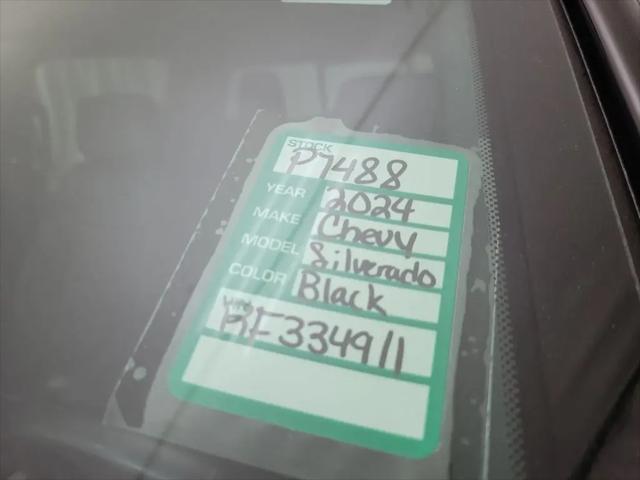 STOCK P7488
YEAR 2024
MAKE Chevy
MODEL Silverado
COLOR Black
VIN RF334911